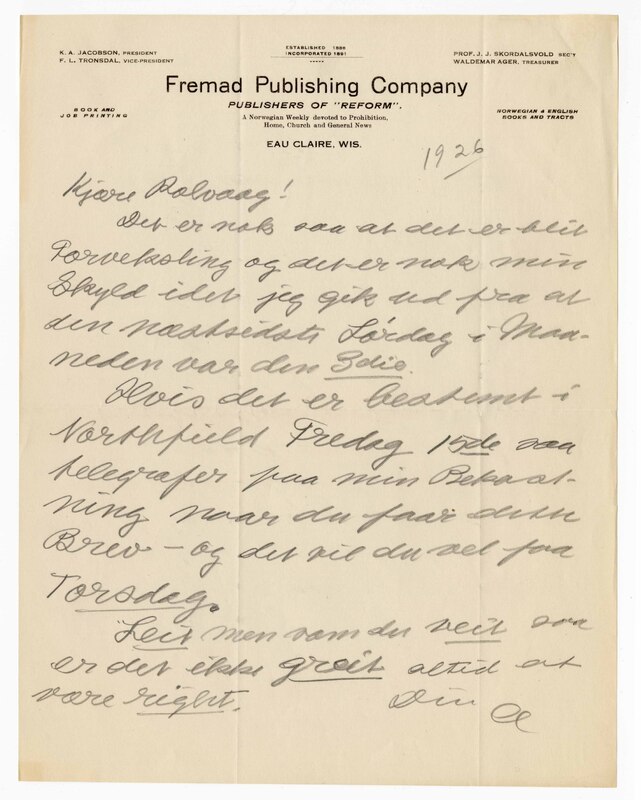 K. A. JACOBSON, PRESIDENT
F. L. TRONSDAL, VICE-PRESIDENT
ESTABLISHED 1886
INCORPORATED 1891
PROF. J. J. SKORDALSVOLD SEC'Y
WALDEMAR AGER, TREASURER
Fremad Publishing Company
PUBLISHERS OF "REFORM".
BOOK AND
JOB PRINTING
A Norwegian Weekly devoted to Prohibition,
Home, Church and General News
NORWEGIAN & ENGLISH
BOOKS AND TRACTS
EAU CLAIRE, WIS.
1926
Kjære Rolvaag!
Det er nok saa at det er blit
Forveksling og det er nok min
Skyld idet jeg gik ud fra at
den næstsidste Lørdag i Maa-
neden var den 3die.
Hvis det er bestemt i
Northfield Fredag 15de saa
telegrafer paa min Bekost-
ning naar du faar dette
Brev – og det vil du vel faa
Torsdag.
Leit men som du veit saa
er det ikke greit altid at
være right.
Din A